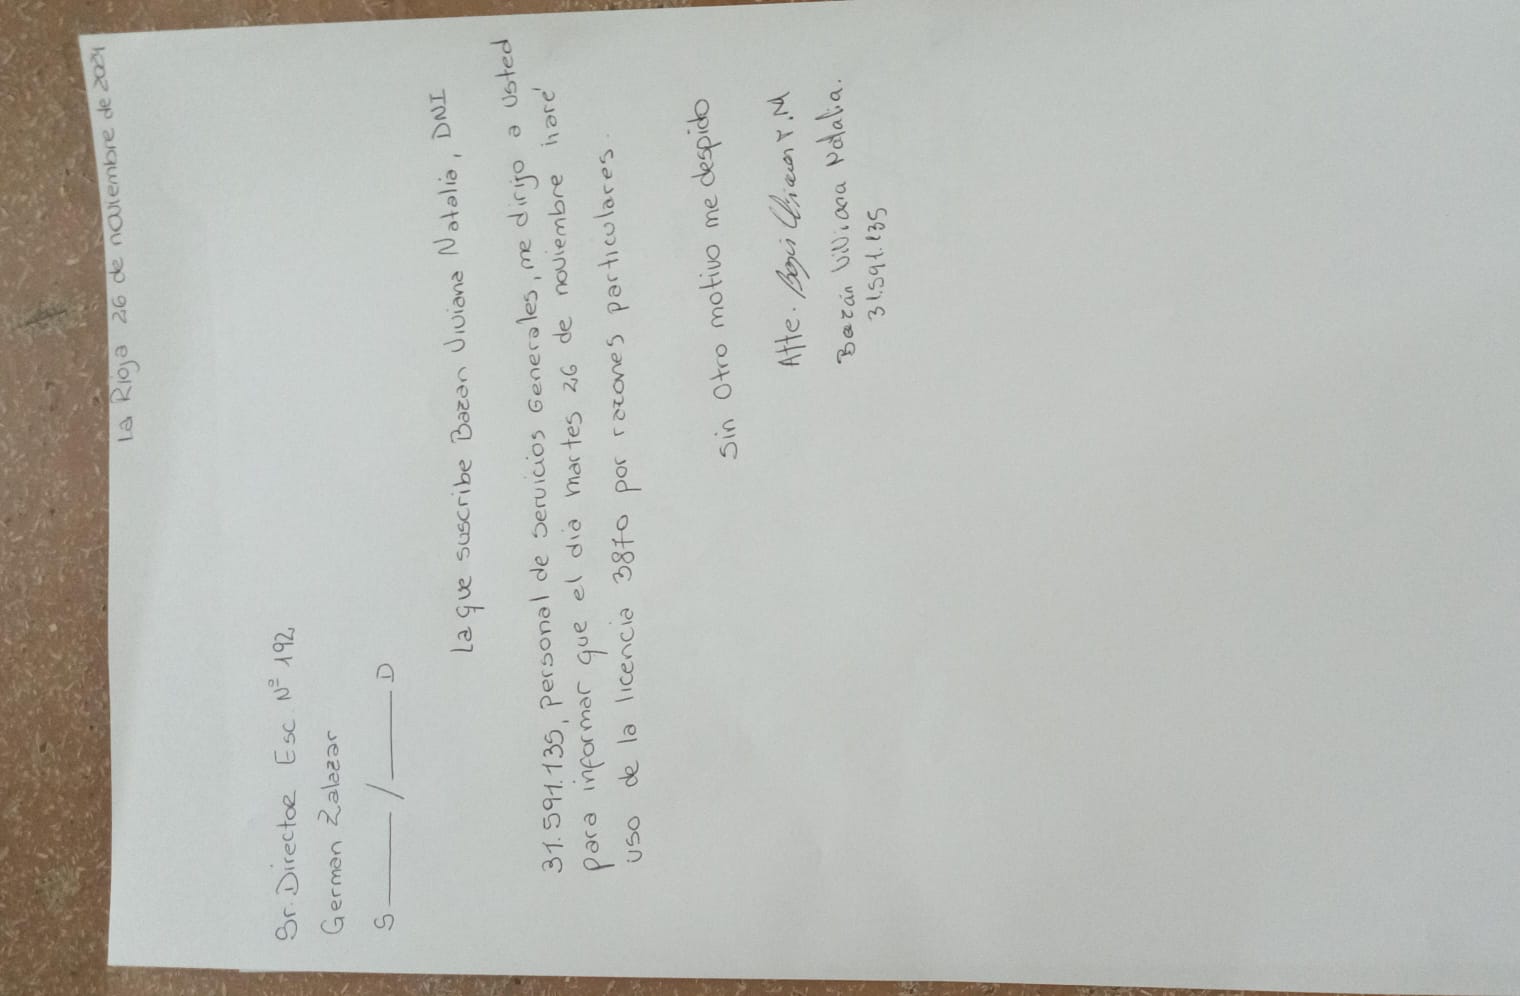 La Rioja 26 de noviembre de 2024
Sr. Director Esc Nº 192
German Zalazar
S____/____D
La que suscribe Bazan Viviana Natalia, DNI
31.591.135, personal de servicios Generales, me dirijo a Usted
para informar que el día martes 26 de noviembre haré
uso de la licencia 3870 por razones particulares.
Sin Otro motivo me despido
Atte.
Bazán Viviana Natalia.
31.591.135